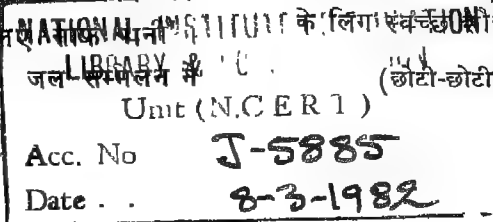 NATIONAL INSTITUT के स्वच्छ
जल LIBRARY & में (छोटी-छोटी
Unit (N.C E R T )
Acc. No J-5885
Date . . 8-3-1982